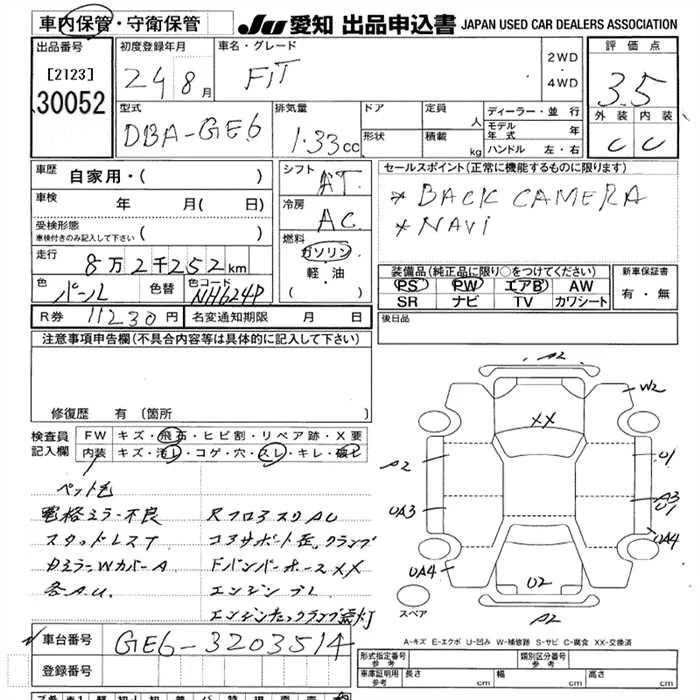 車内保管・守衛保管
JU 愛知 出品申込書 JAPAN USED CAR DEALERS ASSOCIATION
出品番号
[2123]
30052
初度登録年月
24 8月
車名・グレード
FIT
2WD
・
4WD
評価点
3.5
外装 内装
C C
型式
DBA-GE6
排気量
1.33cc
ドア
形状
定員 人
積載 kg
ディーラー・並行
モデル年式 年
ハンドル 左・右
車歴 自家用・( )
車検 年 月( 日)
受検形態
車検付きのみ記入して下さい ( )
走行 8万2千252km
色 パール 色替 色コード NH624P
シフト AT
冷房 AC
燃料
ガソリン
軽・油
( )
セールスポイント(正常に機能するものに限ります)
* BACK CAMERA
* NAVI
装備品(純正品に限り○をつけてください)
PS PW エアB AW
SR ナビ TV カワシート
新車保証書
有・無
R券 11230円 名変通知期限 月 日
後日品
注意事項申告欄(不具合内容等は具体的に記入して下さい)
修復歴 有 (箇所 )
検査員記入欄
FW キズ・飛石・ヒビ割・リペア跡・X要
内装 キズ・汚レ・コゲ・穴・スレ・キレ・破レ
ペット毛
電格ミラー不良
スタッドレスT
各A.U.
コアサポート歪、クランプ
FバンパーホースXX
エンジンチェックランプ点灯
A2
W2
XX
A2
U1
UA3
A3
U1
UA4
UA4
U2
A2
スペア
A-キズ E-エクボ U-凹み W-補修跡 S-サビ C-腐食 XX-交換済
車台番号 GE6-3203514
登録番号
形式指定番号 参考
類別区分番号 参考
車庫証明用 参考 長さ cm 幅 cm 高さ cm